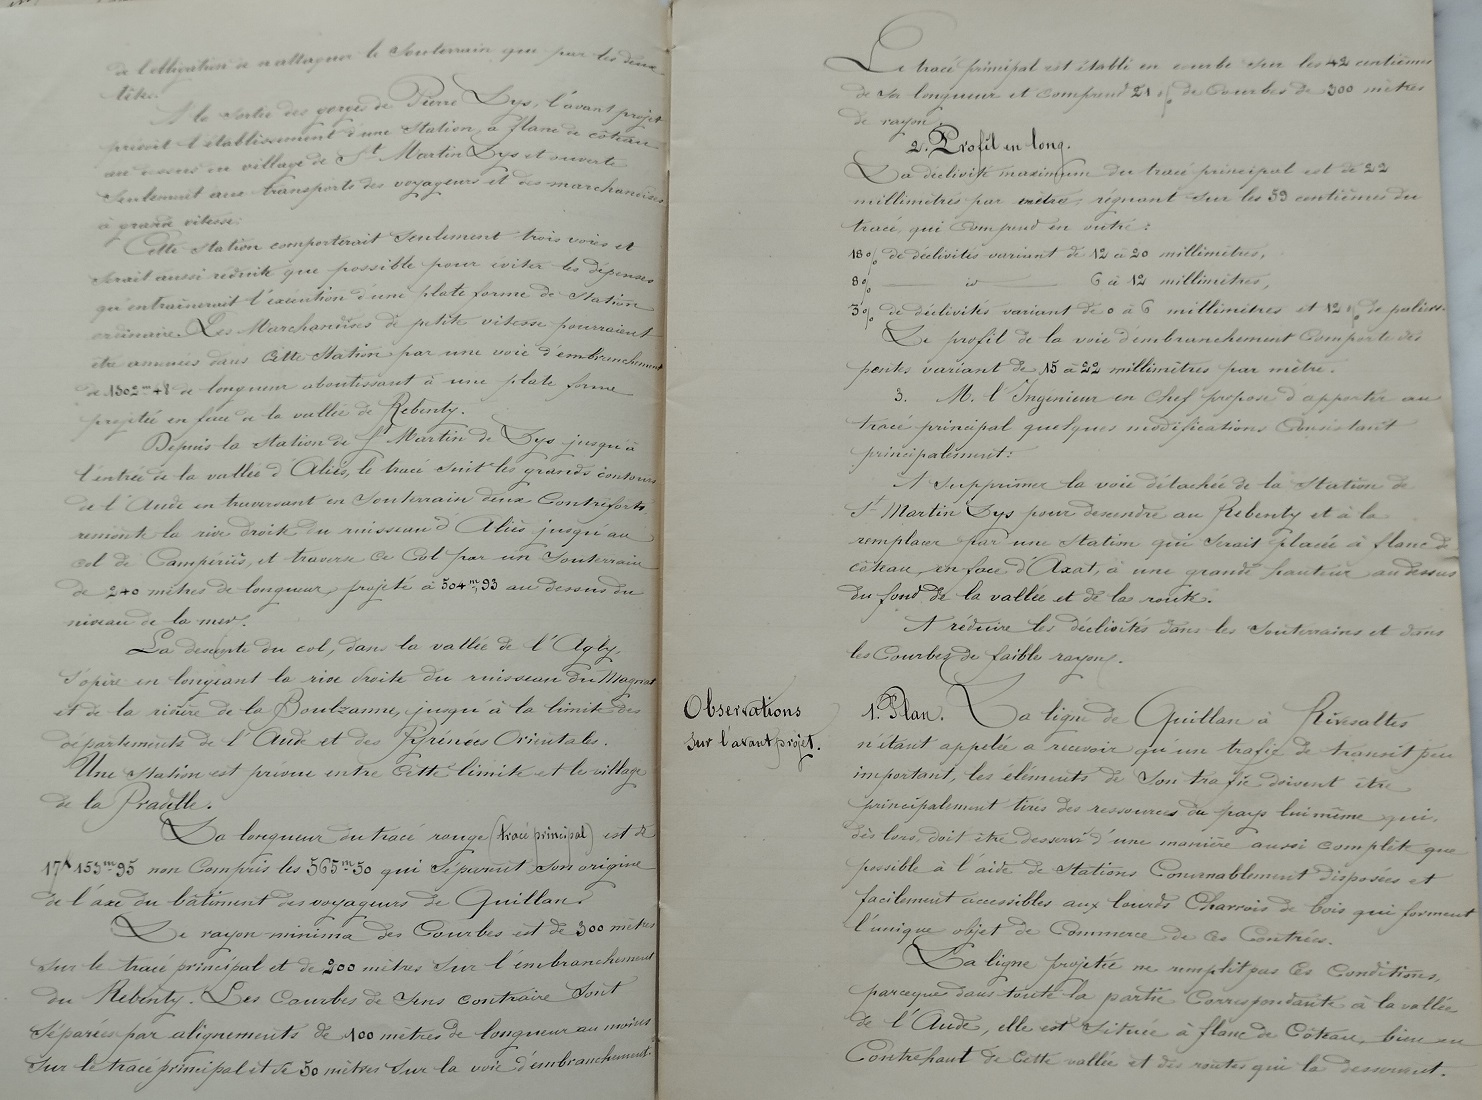 de l'obligation de n'attaquer le Souterrain que par les deux
têtes.
A la Sortie des gorges de Pierre Lys, l'avant projet
prévoit l'établissement d'une Station, à flanc de côteau
au dessus du village de St Martin Lys et ouverte
seulement aux transports des voyageurs et des marchandises
à grande vitesse.
Cette Station comporterait seulement trois voies et
serait aussi réduite que possible pour éviter les dépenses
qu'entrainerait l'exécution d'une plate forme de Station
ordinaire. Les Marchandises de petite vitesse pourraient
être amenées dans cette Station par une voie d'embranchement
de 1302m 48 de longueur aboutissant à une plate forme
projetée en face de la vallée de Rebenty.
Depuis la Station de St Martin de Lys jusqu'à
l'entrée de la vallée d'Aliès, le tracé suit les grands contours
de l'Aude en traversant en Souterrain deux Contreforts
remonte la rive droite du ruisseau d'Aliès jusqu'au
col de Campérié, et traverse ce Col par un Souterrain
de 240 mètres de longueur projeté à 504m,93 au dessus du
niveau de la mer.
La descente du col, dans la vallée de l'Agly,
s'opère en longeant la rive droite du ruisseau du Magnat
et de la rivière de la Boulzanne, jusqu'à la limite des
départements de l'Aude et des Pyrénées Orientales.
Une Station est prévue entre cette limite et le village
de la Pradelle.
La longueur du tracé rouge (tracé principal) est de
17k 153m 95 non Compris les 565m 50 qui séparent son origine
de l'axe du bâtiment des voyageurs de Quillan.
Le rayon minima des Courbes est de 300 mètres
sur le tracé principal et de 200 mètres sur l'embranchement
du Rebenty. Les Courbes de Sens contraire sont
séparées par alignements de 100 mètres de longueur au moins
sur le tracé principal et de 50 mètres sur la voie d'embranchement.
Le tracé principal est établi en courbe sur les 42 centièmes
de sa longueur et comprend 21 % de Courbes de 300 mètres
de rayon.
2. Profil en long.
La déclivité maximum du tracé principal est de 22
millimètres par mètre, régnant sur les 59 centièmes du
tracé, qui Comprend en outre :
18 % de déclivités variant de 12 à 20 millimètres,
8 % — id — 6 à 12 millimètres,
3 % de déclivités variant de 0 à 6 millimètres et 12 % de paliers.
Le profil de la voie d'embranchement Comporte des
pentes variant de 15 à 22 millimètres par mètre.
3. M. l'Ingénieur en Chef propose d'apporter au
tracé principal quelques modifications Consistant
principalement :
A Supprimer la voie détachée de la Station de
St Martin Lys pour descendre au Rebenty et à la
remplacer par une Station qui serait placée à flanc de
côteau, en face d'Axat, à une grande hauteur au dessus
du fond de la vallée et de la route.
A réduire les déclivités dans les Souterrains et dans
les Courbes de faible rayon.
Observations
sur l'avant projet.
1. Plan. La ligne de Quillan à Rivesaltes
n'étant appelée à recevoir qu'un trafic de transit peu
important, les éléments de Son trafic doivent être
principalement tirés des ressources du pays lui même qui,
dès lors, doit être desservi d'une manière aussi complète que
possible à l'aide de Stations Convenablement disposées et
facilement accessibles aux lourds Charrois de bois qui forment
l'unique objet de Commerce de ces Contrées.
La ligne projetée ne remplit pas ces Conditions,
parceque dans toute la partie Correspondante à la vallée
de l'Aude, elle est située à flanc de Côteau, bien en
Contrehaut de cette vallée et des routes qui la desservent.